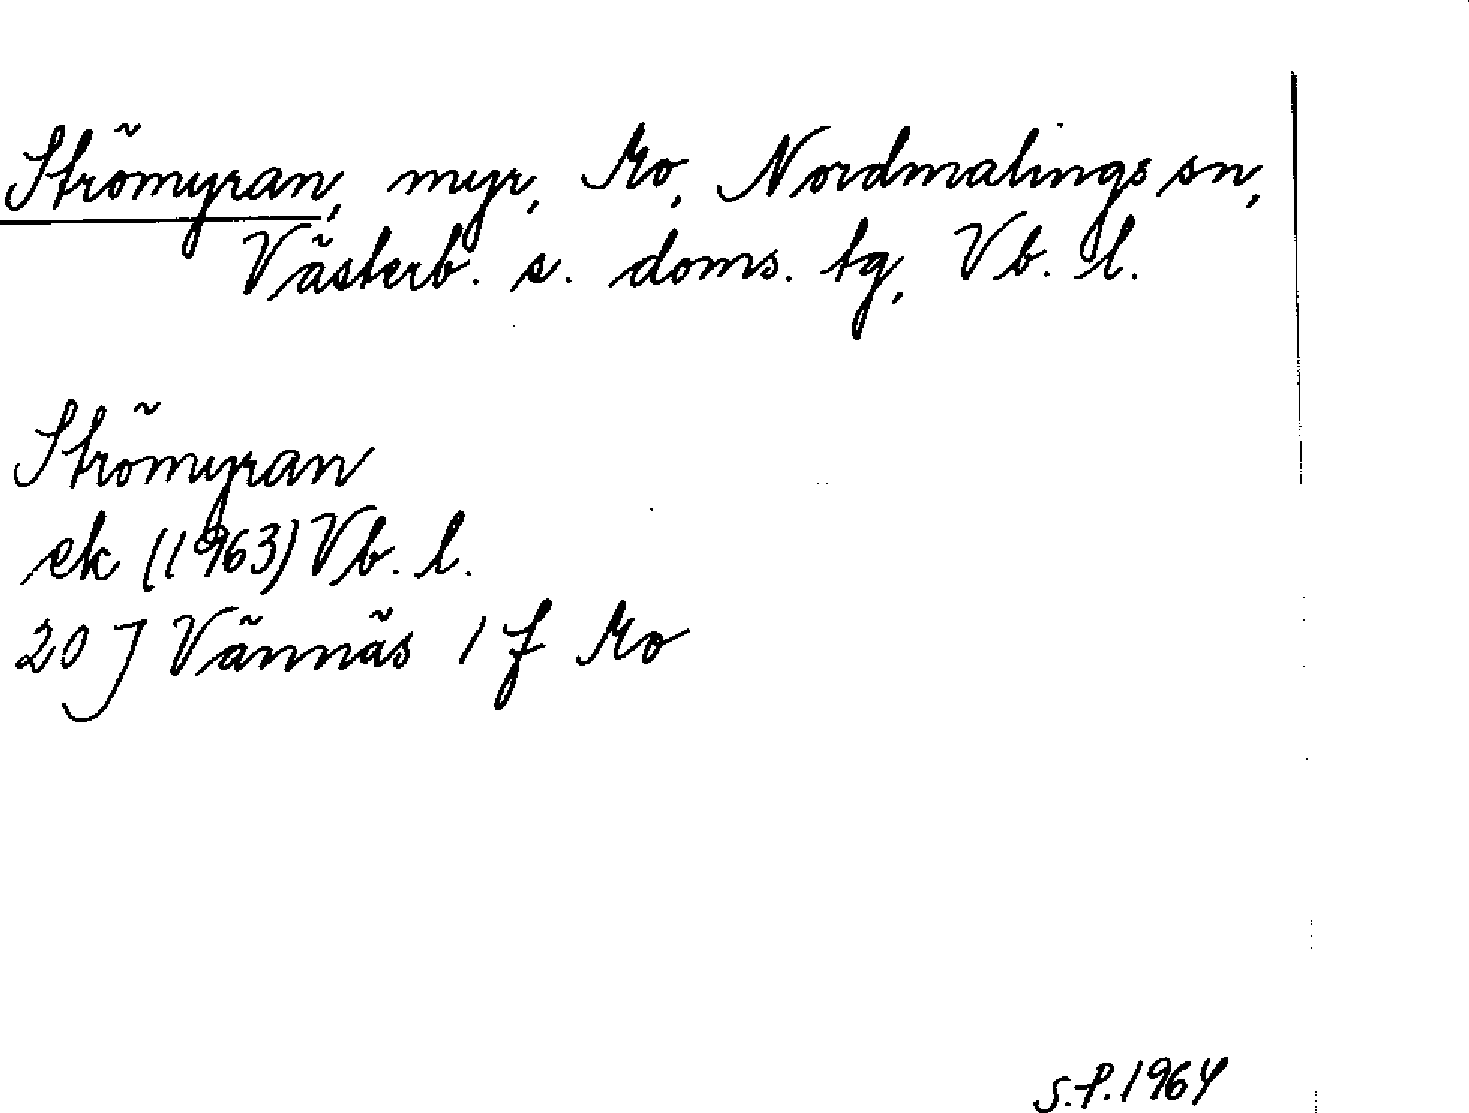 Strömyran, myr, Mo, Nordmalings sn,
Västerb. s. doms. tg, Vb. l.
Strömyran
ek (1963) Vb. l.
20 J Vännäs 1 f Mo
S.P. 1964